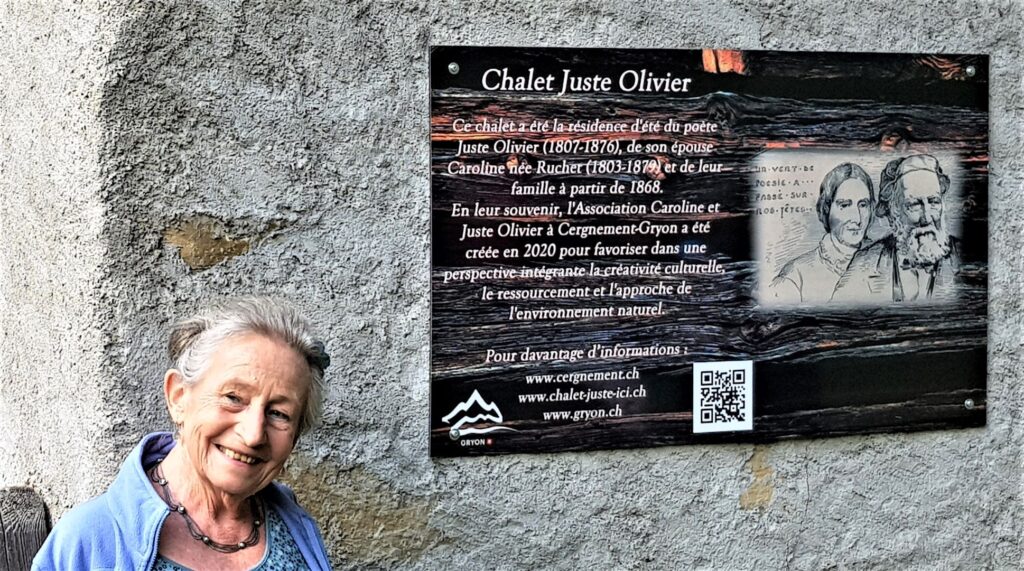 Chalet Juste Olivier
Ce chalet a été la résidence d'été du poète
Juste Olivier (1807-1876), de son épouse
Caroline née Ruchet (1803-1879) et de leur
famille à partir de 1868.
En leur souvenir, l'Association Caroline et
Juste Olivier à Cergnement-Gryon a été
créée en 2020 pour favoriser dans une
perspective intégrante la créativité culturelle,
le ressourcement et l'approche de
l'environnement naturel.
Pour davantage d'informations :
www.cergnement.ch
www.chalet-juste-ici.ch
www.gryon.ch
GRYON
UN VERT DE
POESIE A...
PASSÉ SUR
NOS TÊTES..